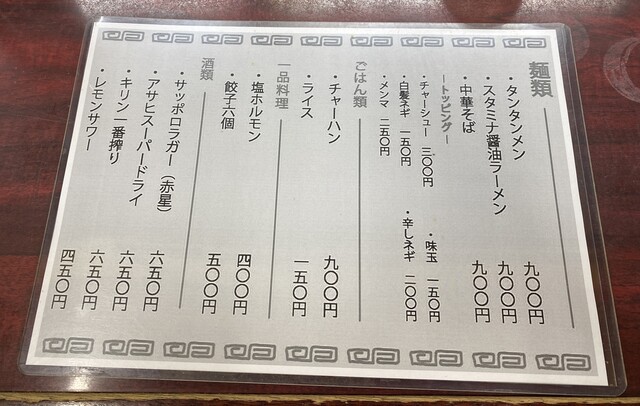 麺類
・タンタンメン 九〇〇円
・スタミナ醤油ラーメン 九〇〇円
・中華そば 九〇〇円
ートッピングー
・チャーシュー 三〇〇円 ・味玉 一五〇円
・白髪ネギ 一五〇円 ・辛しネギ 二〇〇円
・メンマ 二五〇円
ごはん類
・チャーハン 九〇〇円
・ライス 一五〇円
一品料理
・塩ホルモン 四〇〇円
・餃子六個 五〇〇円
酒類
・サッポロラガー(赤星) 六五〇円
・アサヒスーパードライ 六五〇円
・キリン一番搾り 六五〇円
・レモンサワー 四五〇円